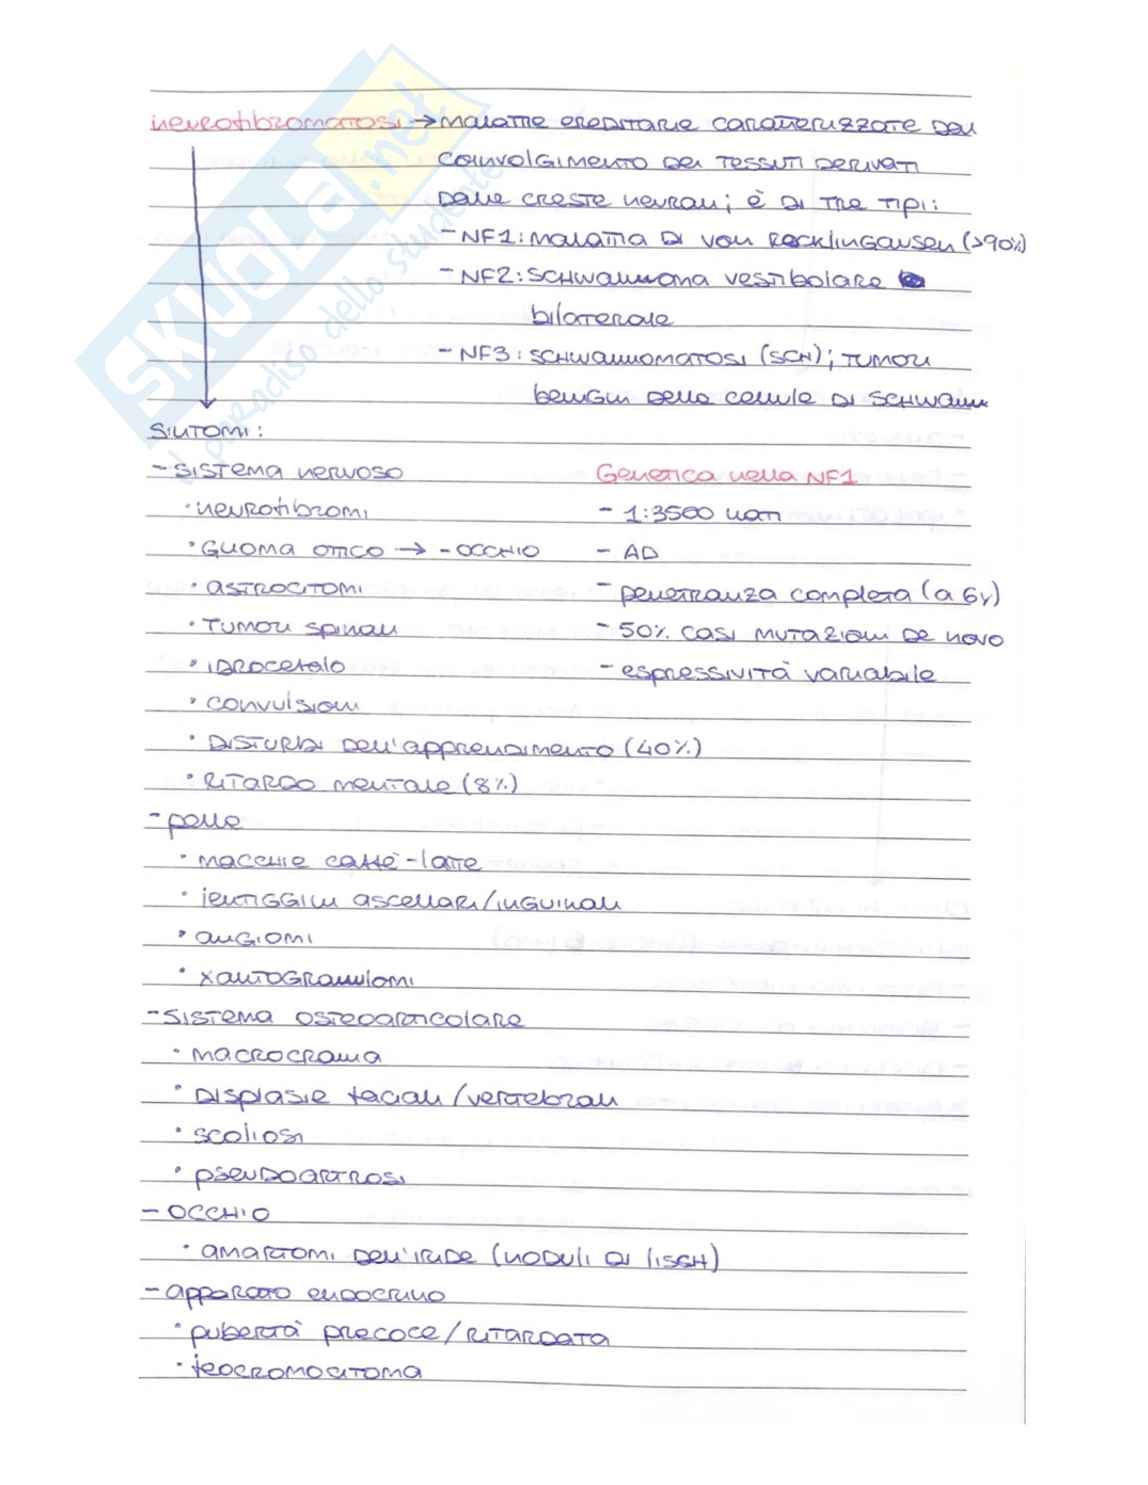 neurofibromatosi → malattie ereditarie caratterizzate dal
coinvolgimento dei tessuti derivati
dalle creste neurali; è di tre tipi:
- NF1: malattia di von Recklingausen (>90%)
- NF2: schwannoma vestibolare
bilaterale
- NF3: schwannomatosi (SCH); tumori
benigni delle cellule di schwann
Sintomi:
- sistema nervoso
Genetica nella NF1
· neurofibromi
- 1:3500 nati
· glioma ottico → - occhio
- AD
· astrocitomi
- penetranza completa (a 6y)
· tumori spinali
- 50% casi mutazioni de novo
· idrocefalo
- espressività variabile
· convulsioni
· disturbi dell'apprendimento (40%)
· ritardo mentale (8%)
- pelle
· macchie caffè-latte
· lentiggini ascellari/inguinali
· angiomi
· xantogranulomi
- sistema osteoarticolare
· macrocrania
· displasie faciali/vertebrali
· scoliosi
· pseudoartrosi
- occhio
· amartomi dell'iride (noduli di lisch)
- apparato endocrino
· pubertà precoce/ritardata
· feocromocitoma
SKUOLA.net
il paradiso dello studente